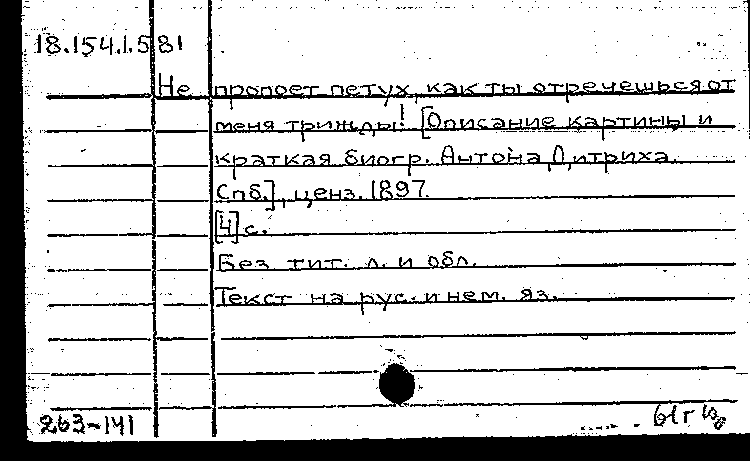 18.154.1.581
Не пропоет петух, как ты отречешься от
меня трижды! [Описание картины и
краткая биогр. Антона Дитриха.
Спб.], ценз. 1897.
[4] с.
Без тит. л. и обл.
Текст на рус. и нем. яз.
263-141